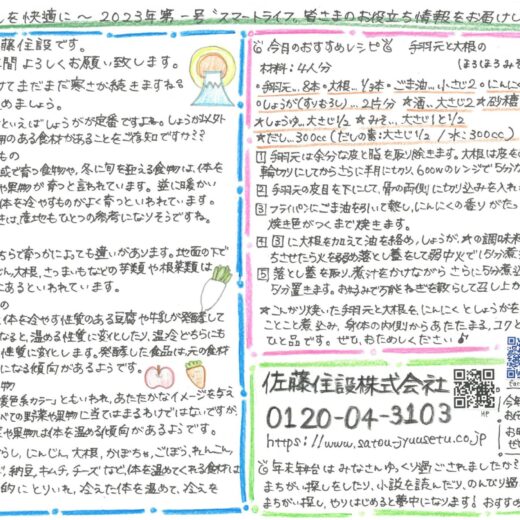 しを快適に～ 2023年第一号 "スマートライフ" 皆さまのお役立ち情報をお届けし
藤住設です。
間よろしくお願い致します。
けてまだまだ寒さが続きますね
めましょう。
といえばしょうがが定番ですよね。しょうが以外
のある食材があることをご存知ですか???
もの
域で育つ食物や、冬に旬を迎える食物は、体を
や果物が育つと言われています。逆に暖かい
体を冷やすものがよく育つといわれています。
きは、産地もひとつの参考になりそうですね。
ちらで育つかによっても違いがあります。地面の下で
じん、大根、さつまいもなどの芋類や根菜類は
にあるといわれています。
の
体を冷やす性質のある豆腐や牛乳が発酵して
なると、温める性質に変化したり、温冷どちらにも
性質に変化します。発酵した食品は、元の食材
になる傾向があるようです。
物
暖色系カラー"ともいわれ、あたたかなイメージを与え
べての野菜や果物に当てはまるわけではいますが、
や果物は体を温める傾向があるようです。
らし、にんじん、大根、かぼちゃ、ごぼう、れんこん、
、納豆、キムチ、チーズなど、体を温めてくれる食材は
的にとりいれ、冷えた体を温めて、冷えを
今月のおすすめレシピ 手羽元と大根の
(ほろほろみそ
材料:4人分
・手羽元…8本 ・大根…1/3本 ・ごま油…小さじ2 ・にんにく
・しょうが(すりおろし)…2片分 ★酒…大さじ2 ★砂糖
★しょうゆ…大さじ1 ★みそ…大さじ1と1/2
★だし…300cc(だしの素:大さじ1/2 / 水:300cc)
1 手羽元は余分な皮と脂を取り除きます。大根は皮を
輪切りにしてからさらに半月に切り、600wのレンジで5分
2 手羽元の皮目を下にして、骨の両側に切り込みを入れ
3 フライパンにごま油を引いて熱し、にんにくの香りがたっ
焼き色がつくまで焼きます。
4 3に大根を加えて油を絡め、しょうが、★の調味料
ちさせたら火を弱め落とし蓋をして弱中火で15分煮
5 落とし蓋を取り、煮汁をかけながらさらに5分煮
5分置きます。お好みで万能ねぎを散らして召し上が
★こんがり焼いた手羽元と大根を、にんにくとしょうがを
ことこと煮込み、身体の内側からあたたまる、コク
ひと品です。ぜひ、おためしください♪
佐藤住設株式会社
0120-04-3103
https://www.satou-jyuusetu.co.jp
HP
年末年始はみなさんゆっくり過ごされましたか?
まちがい探しをしたり、小説を読んだり、のんびり過
まちがい探し、やりはじめると夢中になります! おすすめ